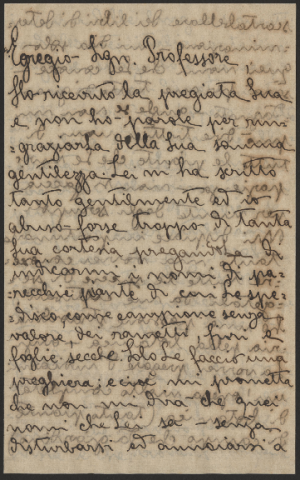 Egregio Sign. Professore,
Ho ricevuto la pregiata Sua
e non ho parole per rin=
=graziarla della Sua somma
gentilezza. Lei m'ha scritto
tanto gentilmente ed io
abuso forse troppo di tanta
Sua cortesia pregandola di
indicarmi i nomi di pa=
=recchie piante di cui Le spe=
=disco, come campione senza
valore, dei rametti fiori e
foglie secche. Solo Le faccio una
preghiera; e cioè mi prometta
che non mi dirà che quei
nomi che Lei sa - senza
disturbarsi ed annoiarsi a